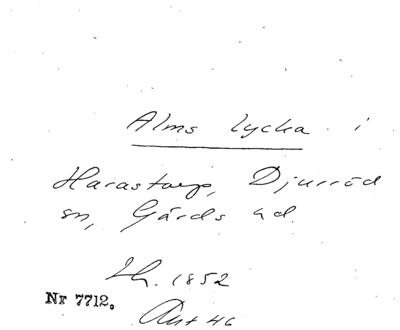 Alms lycka i
Harastorp, Djurröd
sn, Gärds hd
Lh. 1852
Nr 7712.
Aut 46